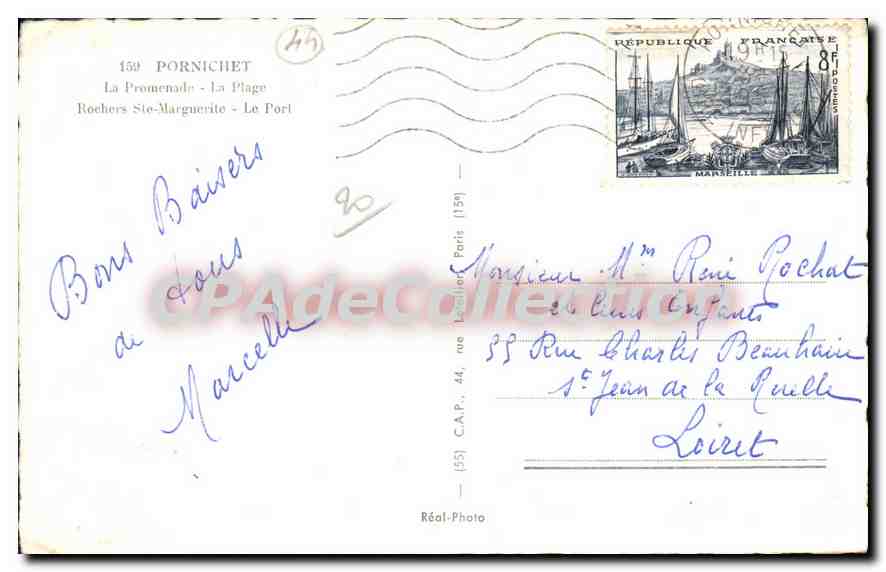 44
159 PORNICHET
La Promenade - La Plage
Rochers Ste-Marguerite - Le Port
Bons Baisers
de tous
Marcelle
20
RÉPUBLIQUE FRANÇAISE
8F
POSTES
MARSEILLE
Monsieur Mm René Rochat
et leurs Enfants
55 Rue Charles Beauhaire
St Jean de la Ruelle
Loiret
(55) C.A.P., 44, rue Letellier, Paris (15e)
Réal-Photo
CPAdeCollection.com